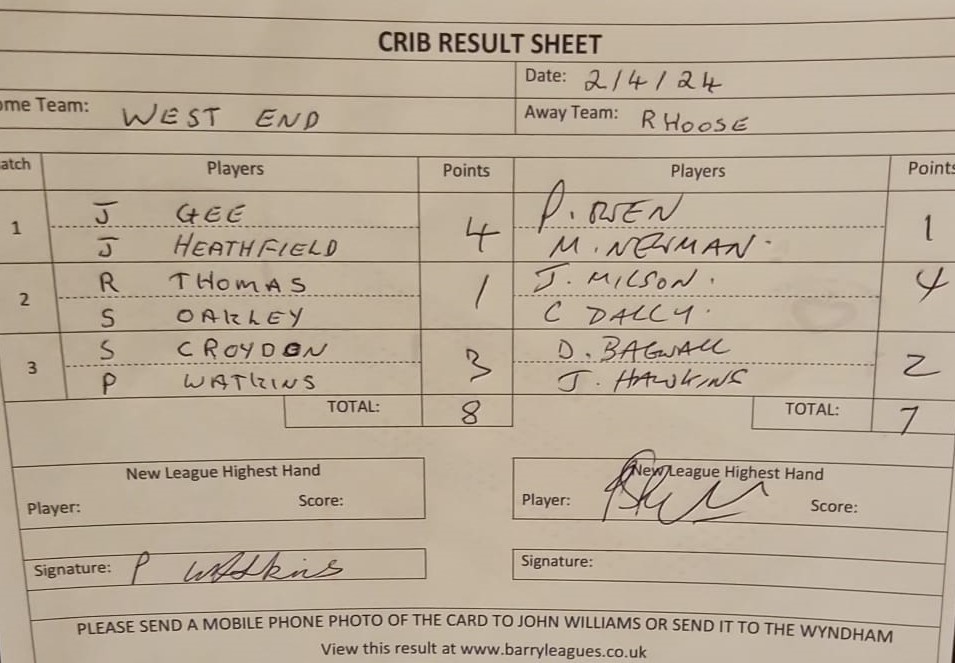 CRIB RESULT SHEET
Date: 2/4/24
ome Team: WEST END Away Team: RHOOSE
atch Players Points Players Points
1 J GEE 4 P. 1
J HEATHFIELD M. NEWMAN
2 R THOMAS 1 J. MILSON. 4
S OAKLEY C DALLY.
3 S CROYDON 3 D. BAGWALL 2
P WATKINS J. HAWKINS
TOTAL: 8 TOTAL: 7
New League Highest Hand New League Highest Hand
Player: Score: Player: Score:
Signature: P Watkins Signature:
PLEASE SEND A MOBILE PHONE PHOTO OF THE CARD TO JOHN WILLIAMS OR SEND IT TO THE WYNDHAM
View this result at www.barryleagues.co.uk